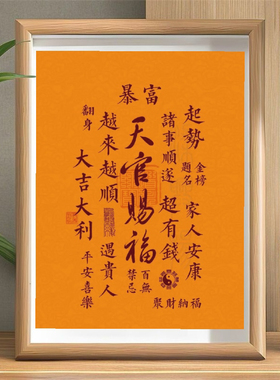 暴富
起勢
金榜
題名
諸事順遂
超有錢
家人安康
天官賜福
百無
禁忌
越來越順
遇貴人
翻身
大吉大利
平安喜樂
聚財納福